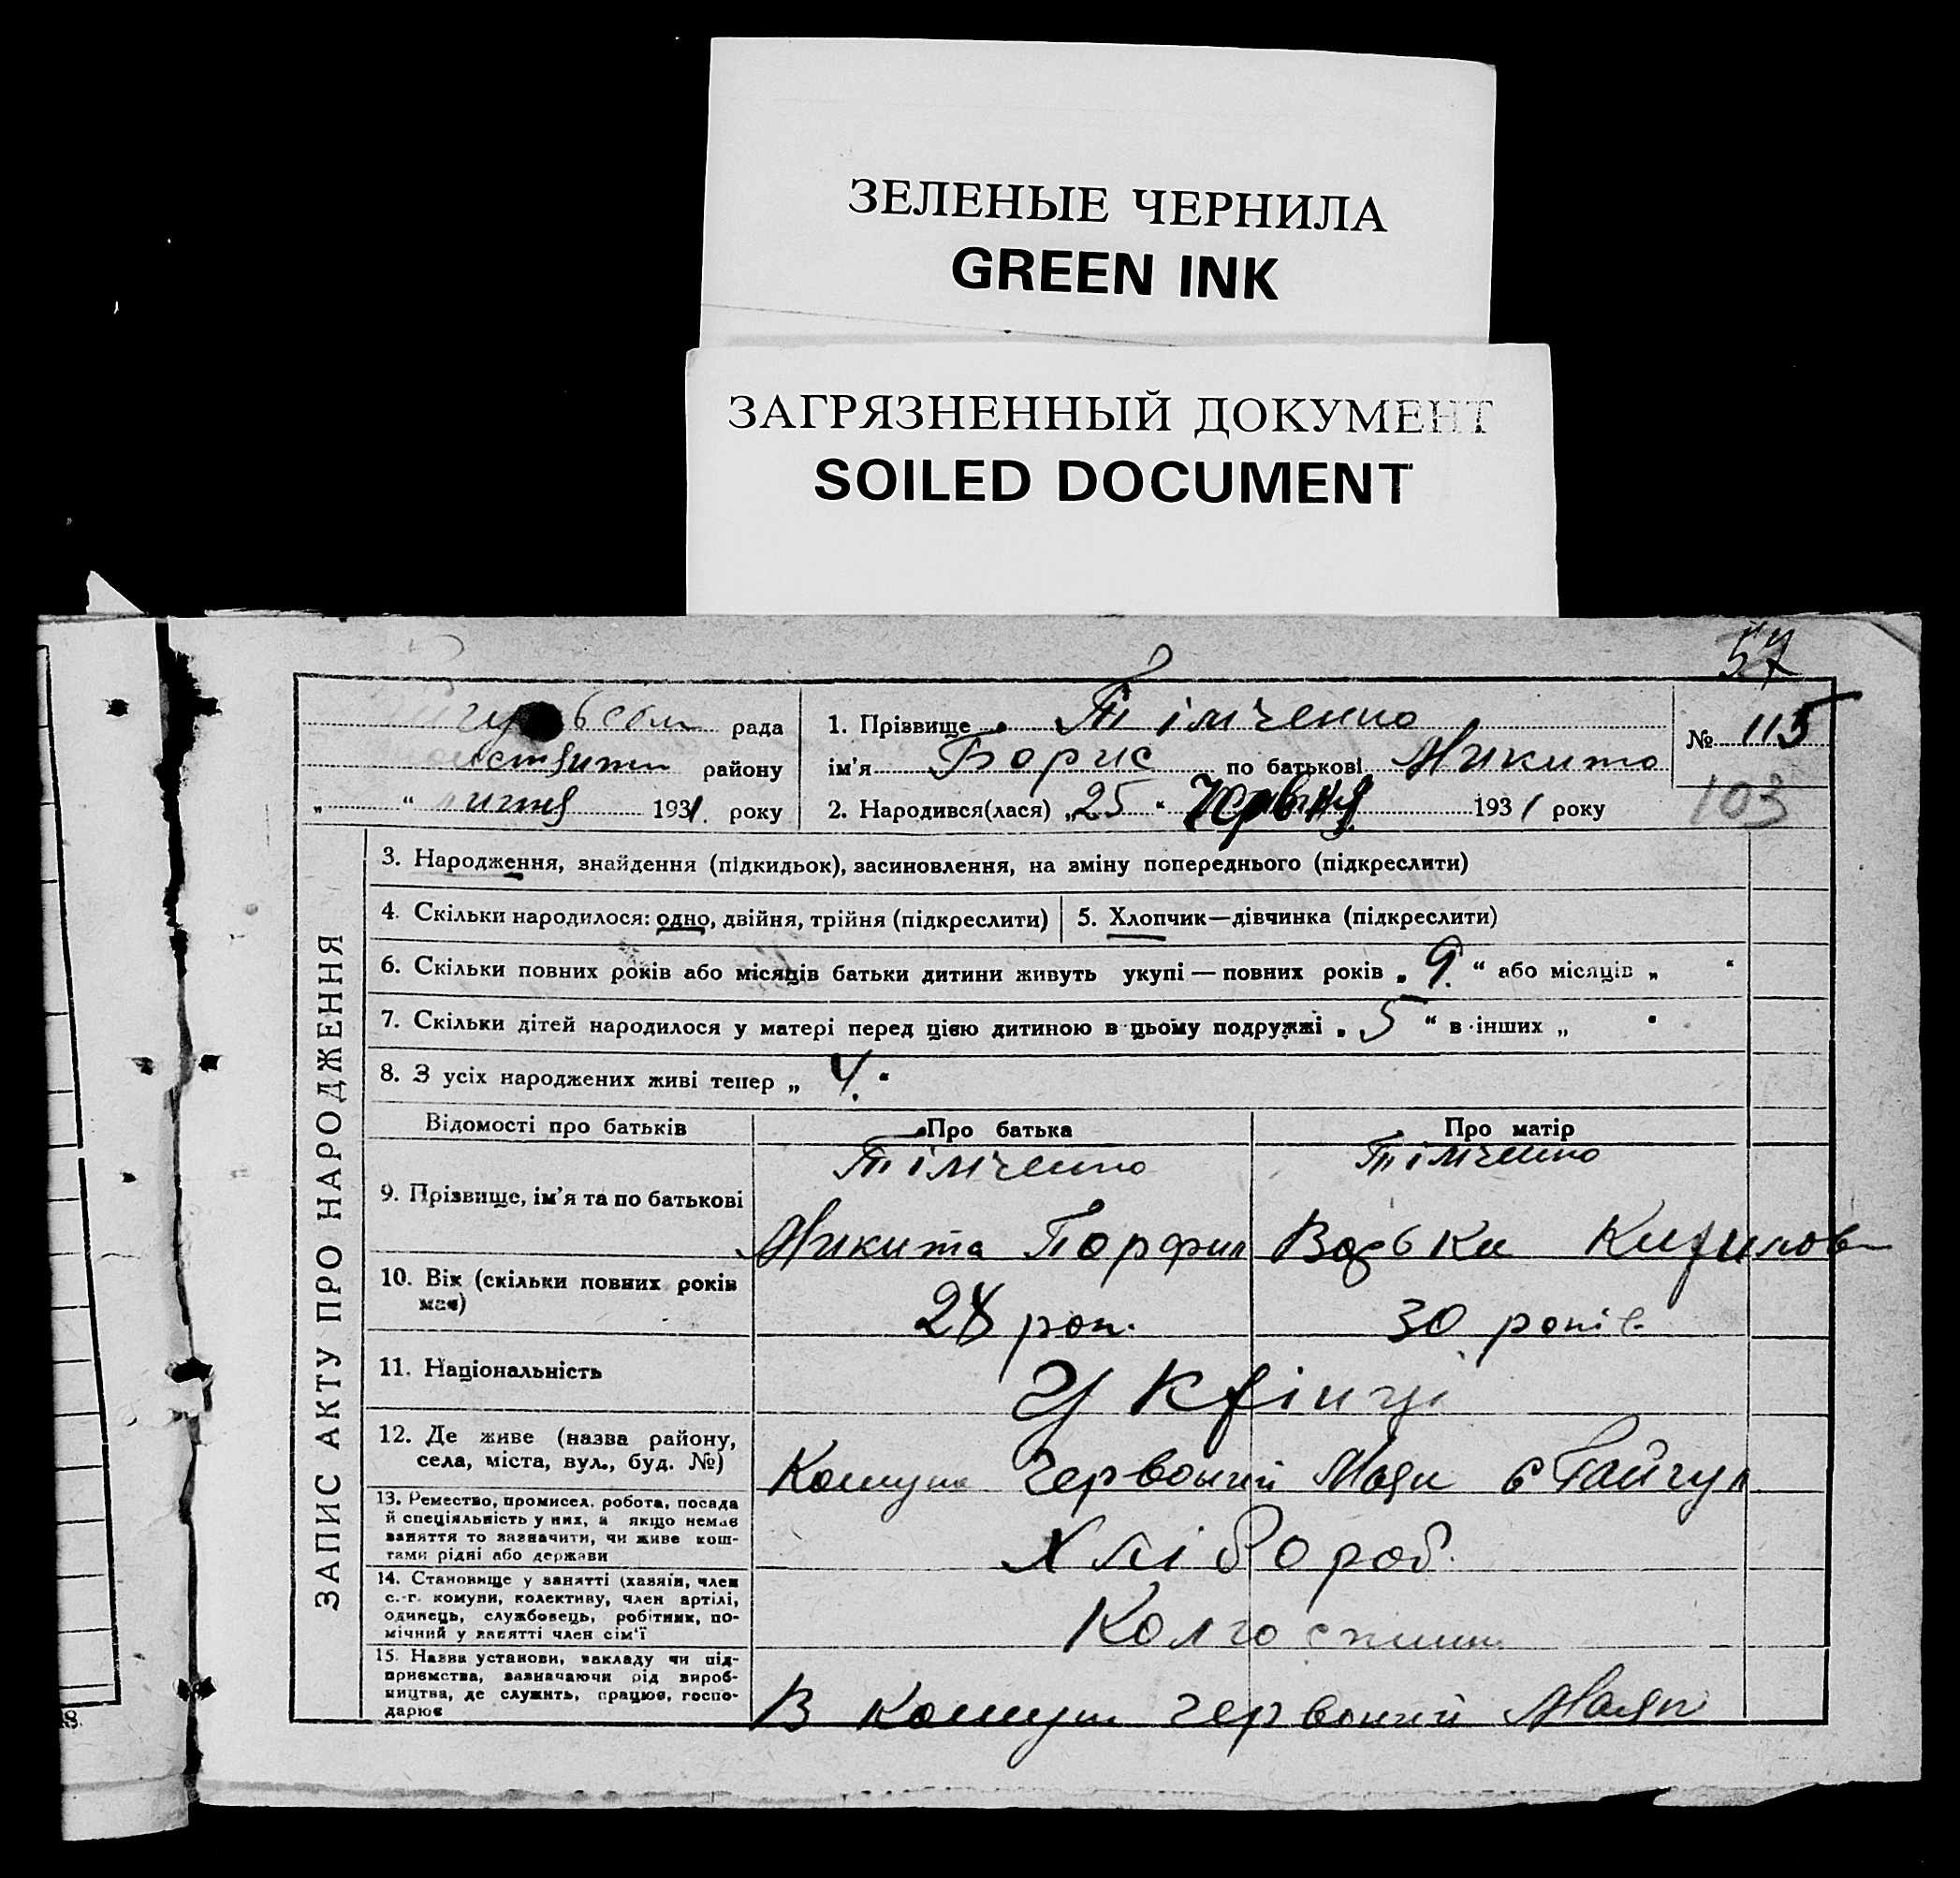 ЗЕЛЕНЫЕ ЧЕРНИЛА
GREEN INK
ЗАГРЯЗНЕННЫЙ ДОКУМЕНТ
SOILED DOCUMENT
57
рада
району
„ “ липня 1931. року
1. Прізвище Тімченко
ім'я Борис по батькові Микито
2. Народився(лася) „25“ Червня 1931 року
№ 115
103
ЗАПИС АКТУ ПРО НАРОДЖЕННЯ
3. Народження, знайдення (підкидьок), засиновлення, на зміну попереднього (підкреслити)
4. Скільки народилося: одно, двійня, трійня (підкреслити)
5. Хлопчик—дівчинка (підкреслити)
6. Скільки повних років або місяців батьки дитини живуть укупі — повних років „9.“ або місяців „ “
7. Скільки дітей народилося у матері перед цією дитиною в цьому подружжі „5“ в інших „ “
8. З усіх народжених живі тепер „4.“
Відомості про батьків
Про батька
Про матір
9. Прізвище, ім'я та по батькові
Тімченко
Тімченко
Микита Порфил
Кирилов
10. Вік (скільки повних років
має)
28 рок.
30 років
11. Національність
Укрінці
12. Де живе (назва району,
села, міста, вул., буд. №)
Комуна Червоний Маяк с Гайчул
13. Ремество, промисел, робота, посада
й спеціяльність у них, а якщо немає
заняття то зазначити, чи живе кош-
тами рідні або держави
Хлібороб.
14. Становище у занятті (хазяїн, член
с.-г. комуни, колективу, член артілі,
одинець, службовець, робітник, по-
мічний у занятті член сім'ї
Колгоспник
15. Назва установи, закладу чи під-
приємства, зазначаючи рід вироб-
ництва, де служить, працює, госпо-
дарює
В комуні червоний Маяк